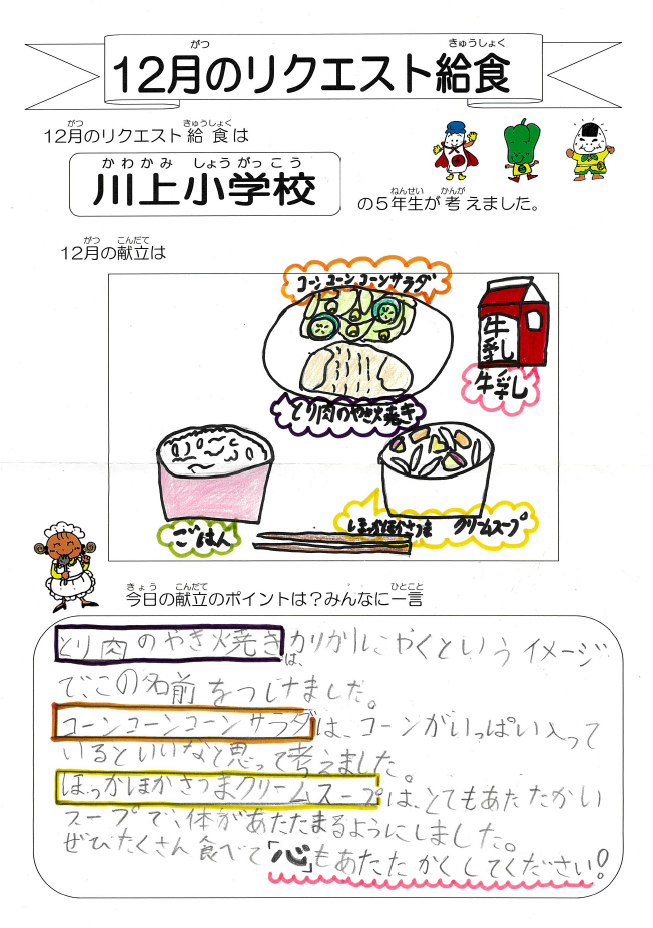 12月のリクエスト給食
がつ
きゅうしょく
12月のリクエスト給食は
がつ
きゅうしょく
川上小学校
かわかみ しょうがっこう
の5年生が考えました。
ねんせい
かんが
12月の献立は
がつ
こんだて
コーンコーンコーンサラダ
牛乳
牛乳
とり肉のやき焼き
ごはん
ほっかほかさつま クリームスープ
今日の献立のポイントは?みんなに一言
きょう
こんだて
ひとこと
とり肉のやき焼きは、カリカリにやくというイメージ
で、この名前をつけました。
コーンコーンコーンサラダは、コーンがいっぱい入って
いるといいなと思って考えました。
ほっかほかさつまクリームスープは、とてもあたたかい
スープで、体があたたまるようにしました。
ぜひたくさん食べて「心」もあたたかくしてください!